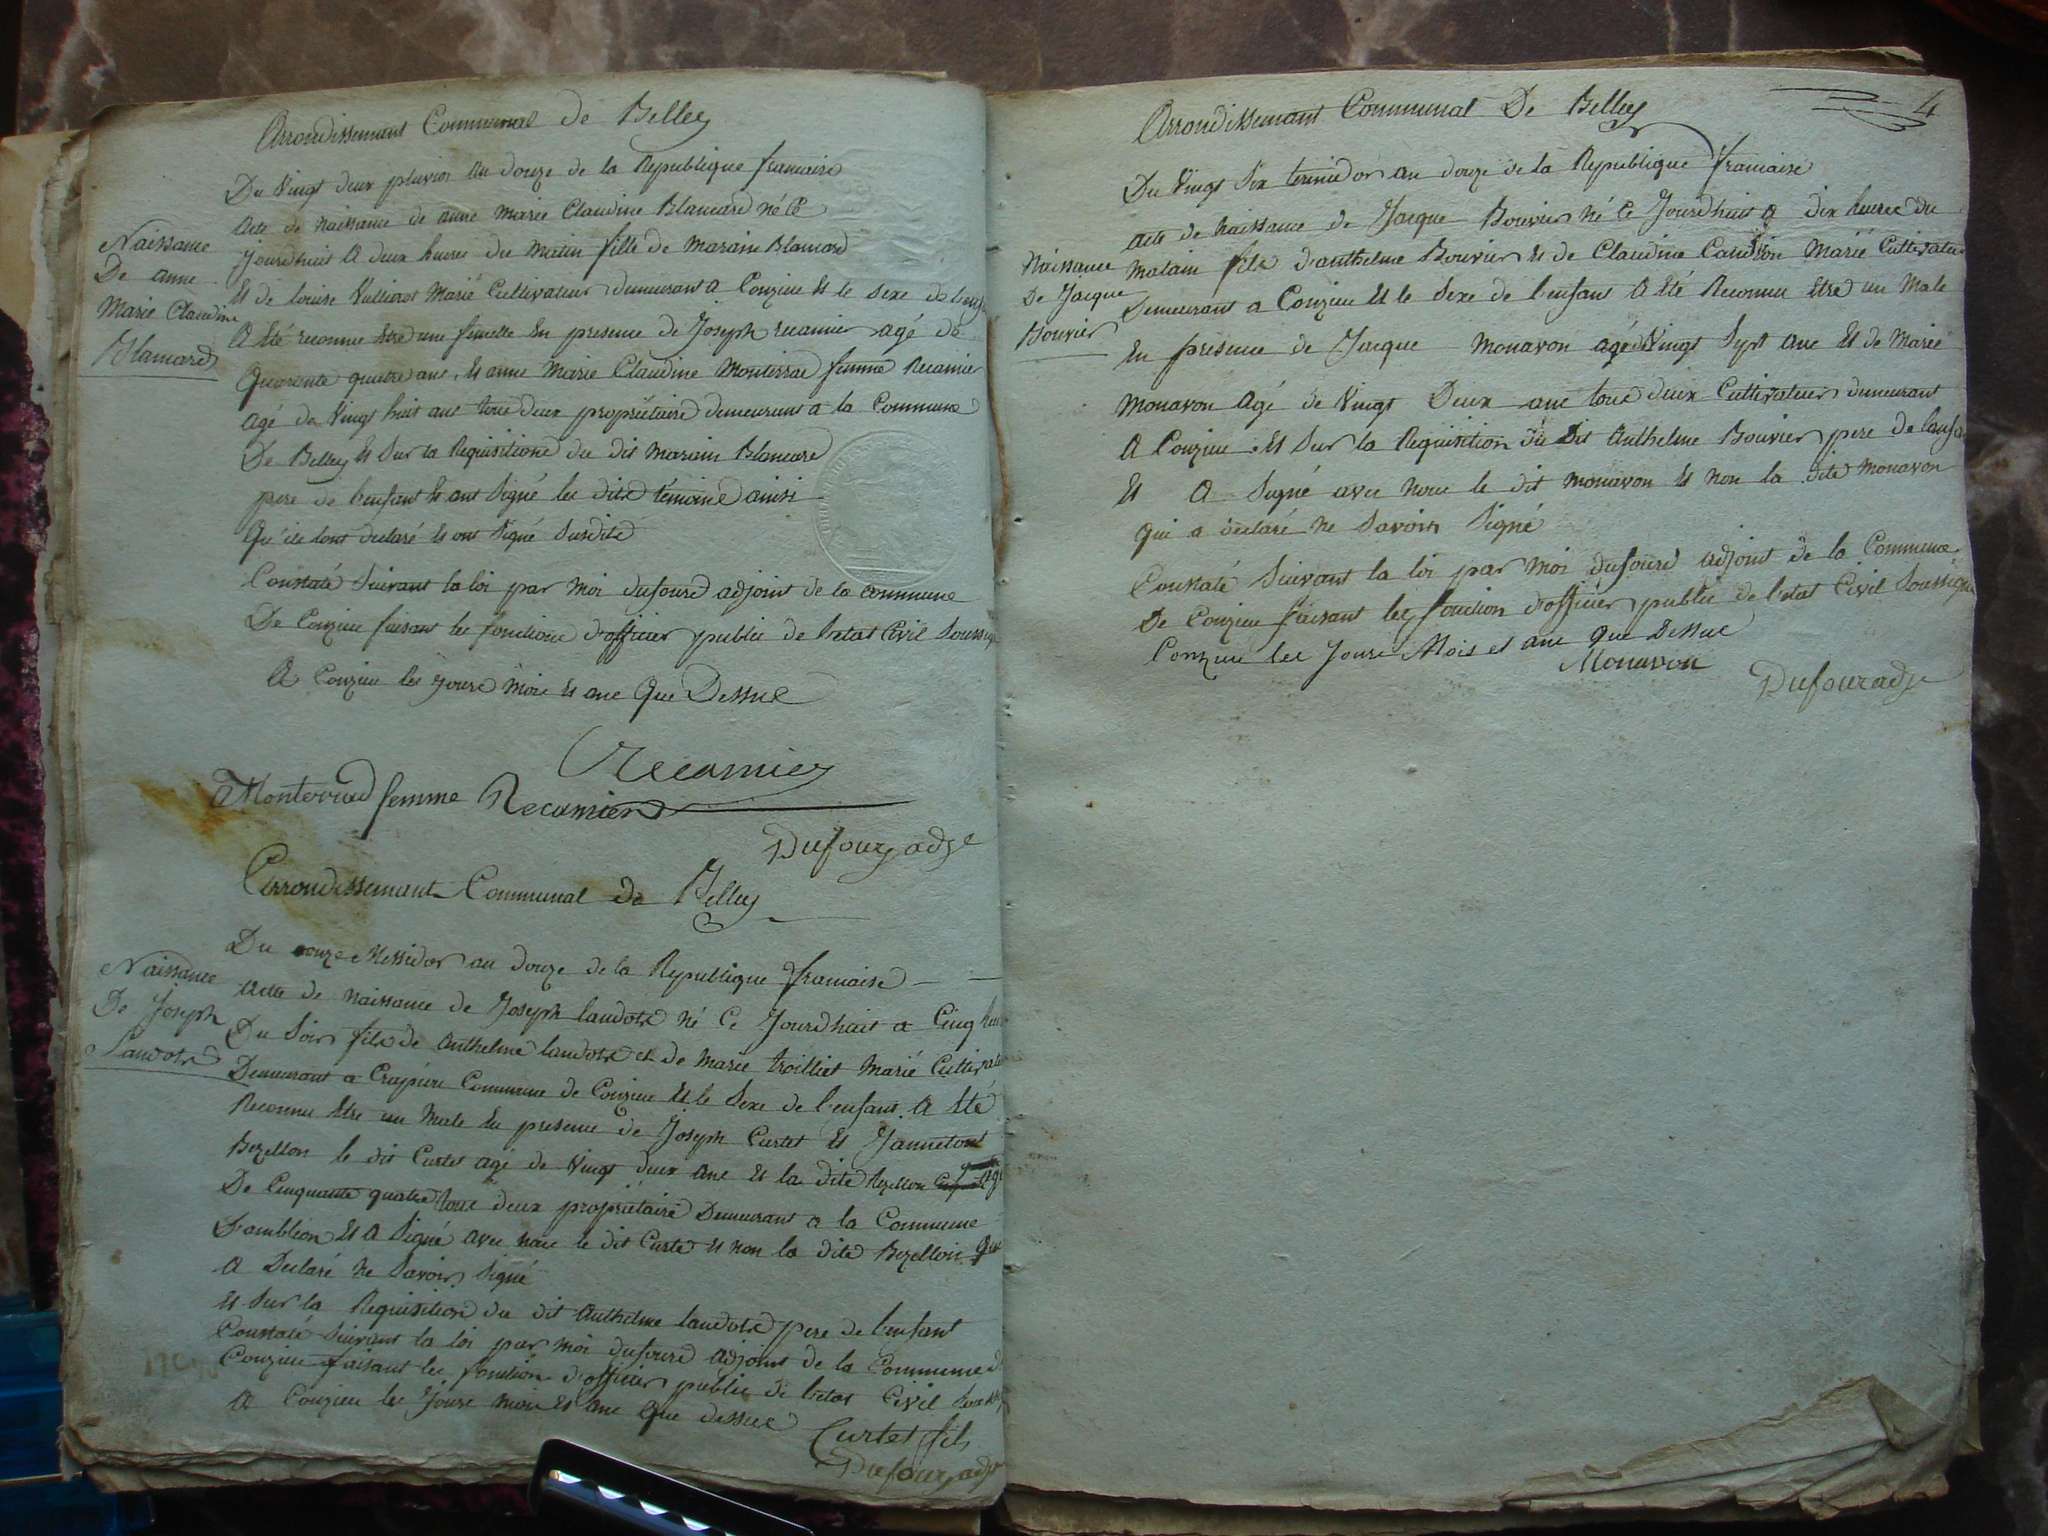 Arrondissemant Communal de Belley
Du Vingt deux pluvios an douze de la Republique francaise
Acte de naissance de anne marie Claudine Blancard né Ce
Naissance
De anne
Marie Claudine
Blancard
jourdhuit a deux heures du matin fille de marain Blancard
Et de louise Vullierot Marié Cultivateur demeurant a Conzieu Et le sexe de lenfan
A Eté reconnue Etre une femelle En presence de Joseph recamier agé de
Quarente quatre ans, Et anne Marie Claudine Monterrad femme Recamier
Agé de Vingt huit ans tous deux proprietaire demeurant a la Commune
De Belley Et Sur la Requisitione du dit marain Blancard
pere de l'enfant Et ont Signé les dits témoins ainsi
Qu'ils lont declaré Et ont Signé Susdits
Constaté Suivant la loi par moi dufourd adjoint de la commune
De Conzieu faisant les fonctions d'officier public de l'etat Civil Soussig
A Conzieu les jours mois Et ans Que Dessus
Recamier
A Monterrad femme Recamier
Dufour adje
Arrondissemant Communal de Belley
Du onze Messidor an douze de la Republique francaise
Naissance
De Joseph
Landots
Acte de naissance de Joseph landots né Ce Jourdhuit a Cinq heu
Du Soir fils de Anthelme landots et de Marie troilliet Marié Cultivate
Demeurant a Crapieu Commune de Conzieu Et le Sexe de l'enfant A Eté
Reconnu Etre un Male En presence de Joseph Curtet Et Jannetont
Bezellon le dit Curtet agé de Vingt deux ans Et la dite Bezellon agé
De Cinquante quatre tous deux proprietaire Demeurant a la Commune
D'ambléon Et A Signé avec nous le dit Curtet Et non la dite Bezellon Qui
A Declaré Ne Savoir Signé
Et Sur la Requisition du dit Anthelme landots pere de l'enfant
Constaté Suivant la loi par moi dufourd adjoint de la Commune de
Conzieu faisant les fonction d'officier public de l'etat Civil Souss
A Conzieu les Jours mois Et ans Que dessus
Curtet fils
Dufour adje
4
Arrondissemant Communal De Belley
Du Vingt Six termidor an douze de la Republique francaise
Naissance
De Jacque
Bouvier
Acte de Naissance de Jacque Bouvier Né Ce Jourdhuit a dix heures du
Matain fils d'anthelme Bouvier Et de Claudine Marié Cultivateu
Demeurant a Conzieu Et le Sexe de l'enfant A Eté Reconnu Etre un Male
En presence de Jacque Monavon agé de Vingt Sept ans Et de Marie
Monavon Agé de Vingt Deux ans tous deux Cultivateurs demeurant
A Conzieu Et Sur la Requisition du Dit Anthelme Bouvier pere de lanfa
Et A Signé avec nous le dit Monavon Et non la dite Monavon
Qui a declaré ne Savoir Signé
Constaté Suivant la loi par Moi dufourd adjoint de la Commune
De Conzieu faisant les fonction d'officier public de l'etat Civil Soussigné
Conzieu les Jours Mois et ans Que Dessus
Monavon
Dufour adje